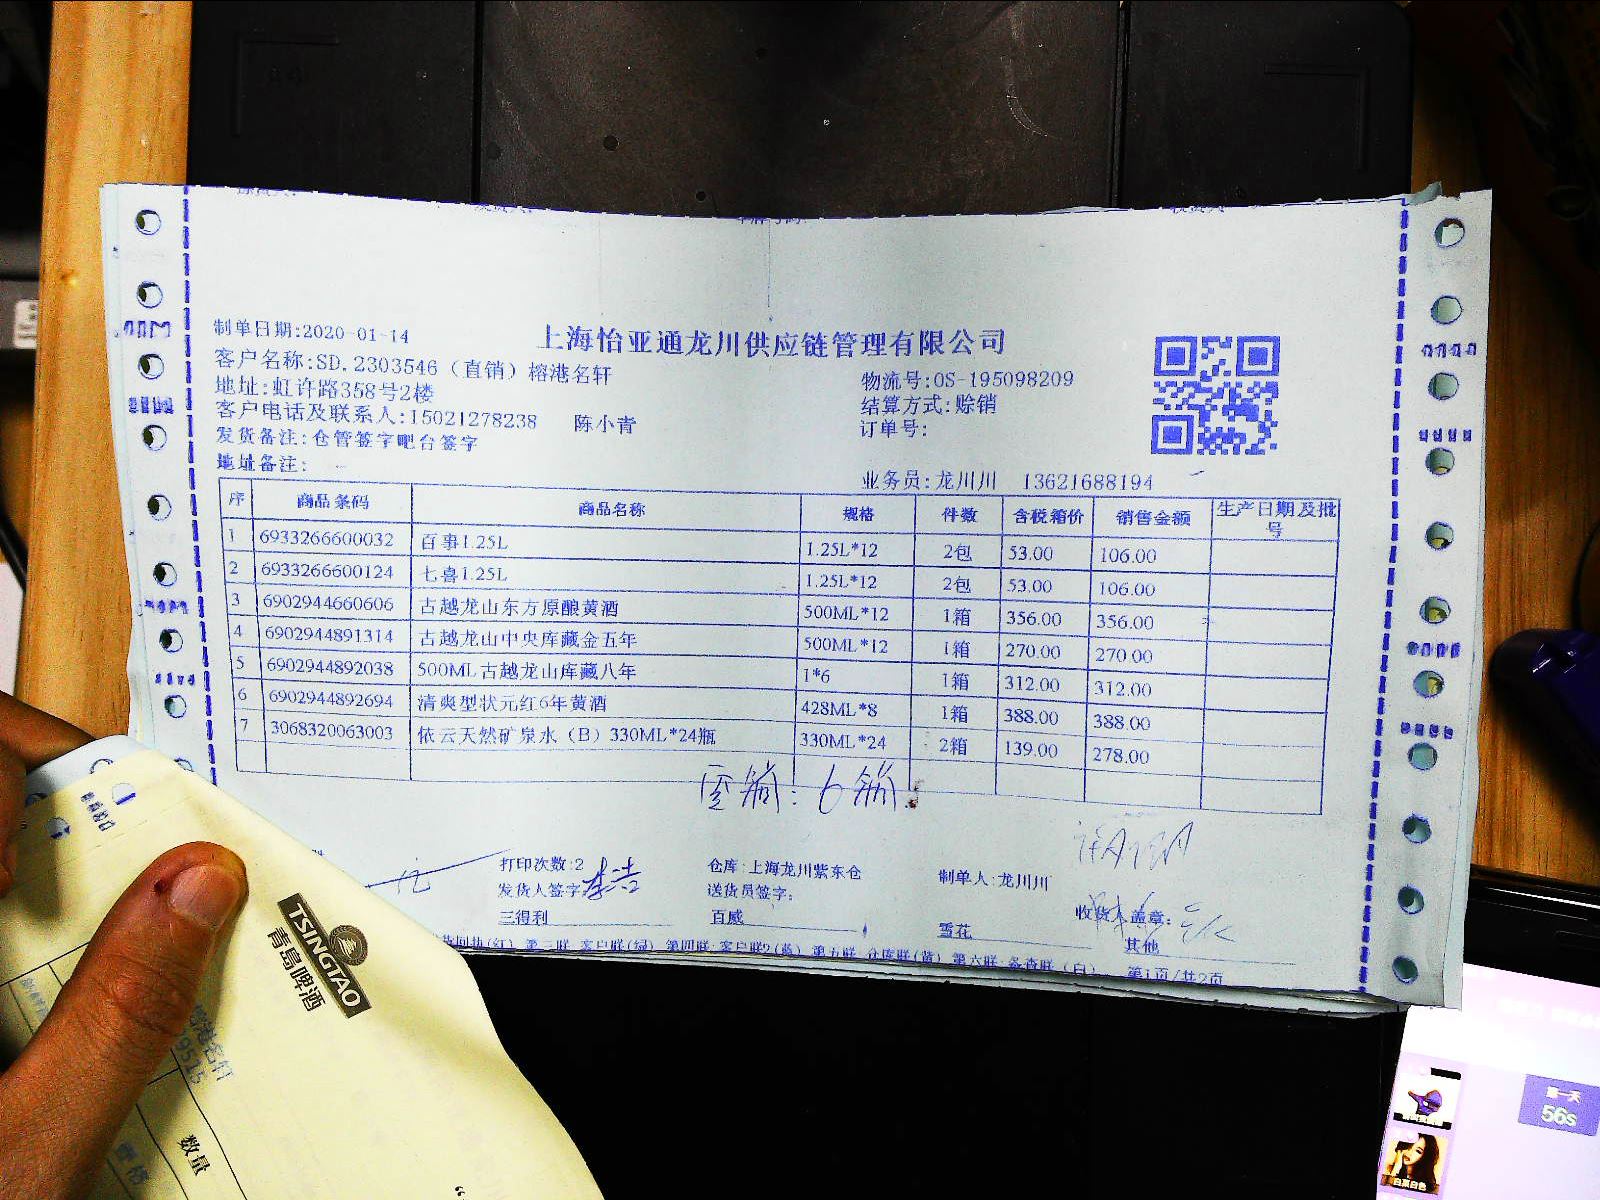 制单日期:2020-01-14
上海怡亚通龙川供应链管理有限公司
客户名称:SD.2303546（直销）榕港名轩
物流号:OS-195098209
地址:虹许路358号2楼
结算方式:赊销
客户电话及联系人:15021278238 陈小青
订单号:
发货备注:仓管签字吧台签字
地址备注:
业务员:龙川川 13621688194
序 商品条码 商品名称 规格 件数 含税箱价 销售金额 生产日期及批号
1 6933266600032 百事1.25L 1.25L*12 2包 53.00 106.00
2 6933266600124 七喜1.25L 1.25L*12 2包 53.00 106.00
3 6902944660606 古越龙山东方原酿黄酒 500ML*12 1箱 356.00 356.00
4 6902944891314 古越龙山中央库藏金五年 500ML*12 1箱 270.00 270.00
5 6902944892038 500ML古越龙山库藏八年 1*6 1箱 312.00 312.00
6 6902944892694 清爽型状元红6年黄酒 428ML*8 1箱 388.00 388.00
7 3068320063003 依云天然矿泉水（B）330ML*24瓶 330ML*24 2箱 139.00 278.00
6箱
打印次数:2
仓库:上海龙川紫东仓
制单人:龙川川
发货人签字 李浩
送货员签字:
收货人盖章:
三得利
百威
雪花
其他
第三联 客户联(绿) 第四联 客户联2(蓝) 第五联 仓库联(黄) 第六联 备查联(白) 第1页/共2页
TSINGTAO
青岛啤酒
港名轩
9515
数量
第一天
56s